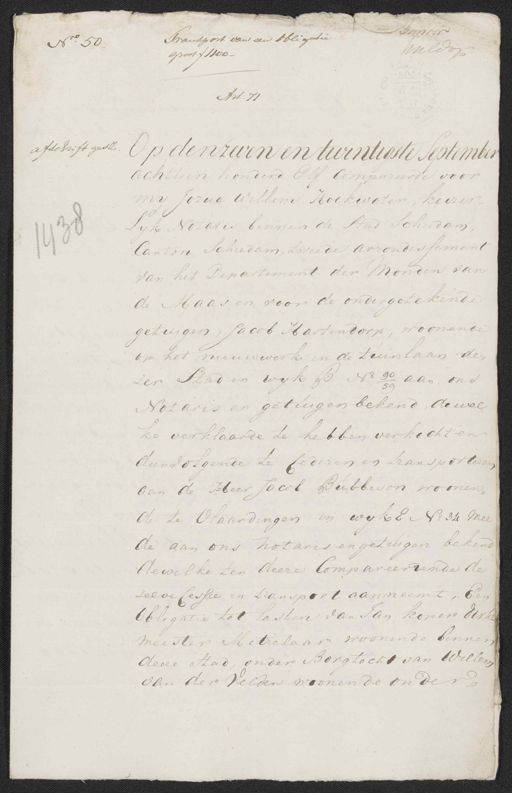 Nro 50.
Transport van een obligatie
groot ƒ 1400.-
Art. 71
1438
Op den zeven en twintigste September
achttien honderd Elf Compareerde voor
my Josua Willem Hookwater, keizer-
lyk Notaris binnen de Stad Schiedam,
Canton Schiedam, tweede arrondissement
van het Departement der Monden van
de Maas, en voor de ondergetekende
getuigen, Jacob Hartendorp, woonende
op het nieuwwerk in de Tuinlaan de-
zer Stad in wyk B No. 90/59 aan ons
Notaris en getuigen bekend, dewel
ke verklaarde te hebben verkocht en
dienvolgende te Cederen en transporteren
aan de Heer Jacob Bubbeson woonen
de te Vlaardingen in wyk E No 34 mee
de aan ons Notaris en getuigen bekend
dewelke ten deeze Compareerende de
zelve Cessie en transport aanneemt, Een
Obligatie tot lasten van Jan
meester Metselaar woonende binnen
deeze Stad, onder Borgtocht van Willem
van der Velden woonende onder